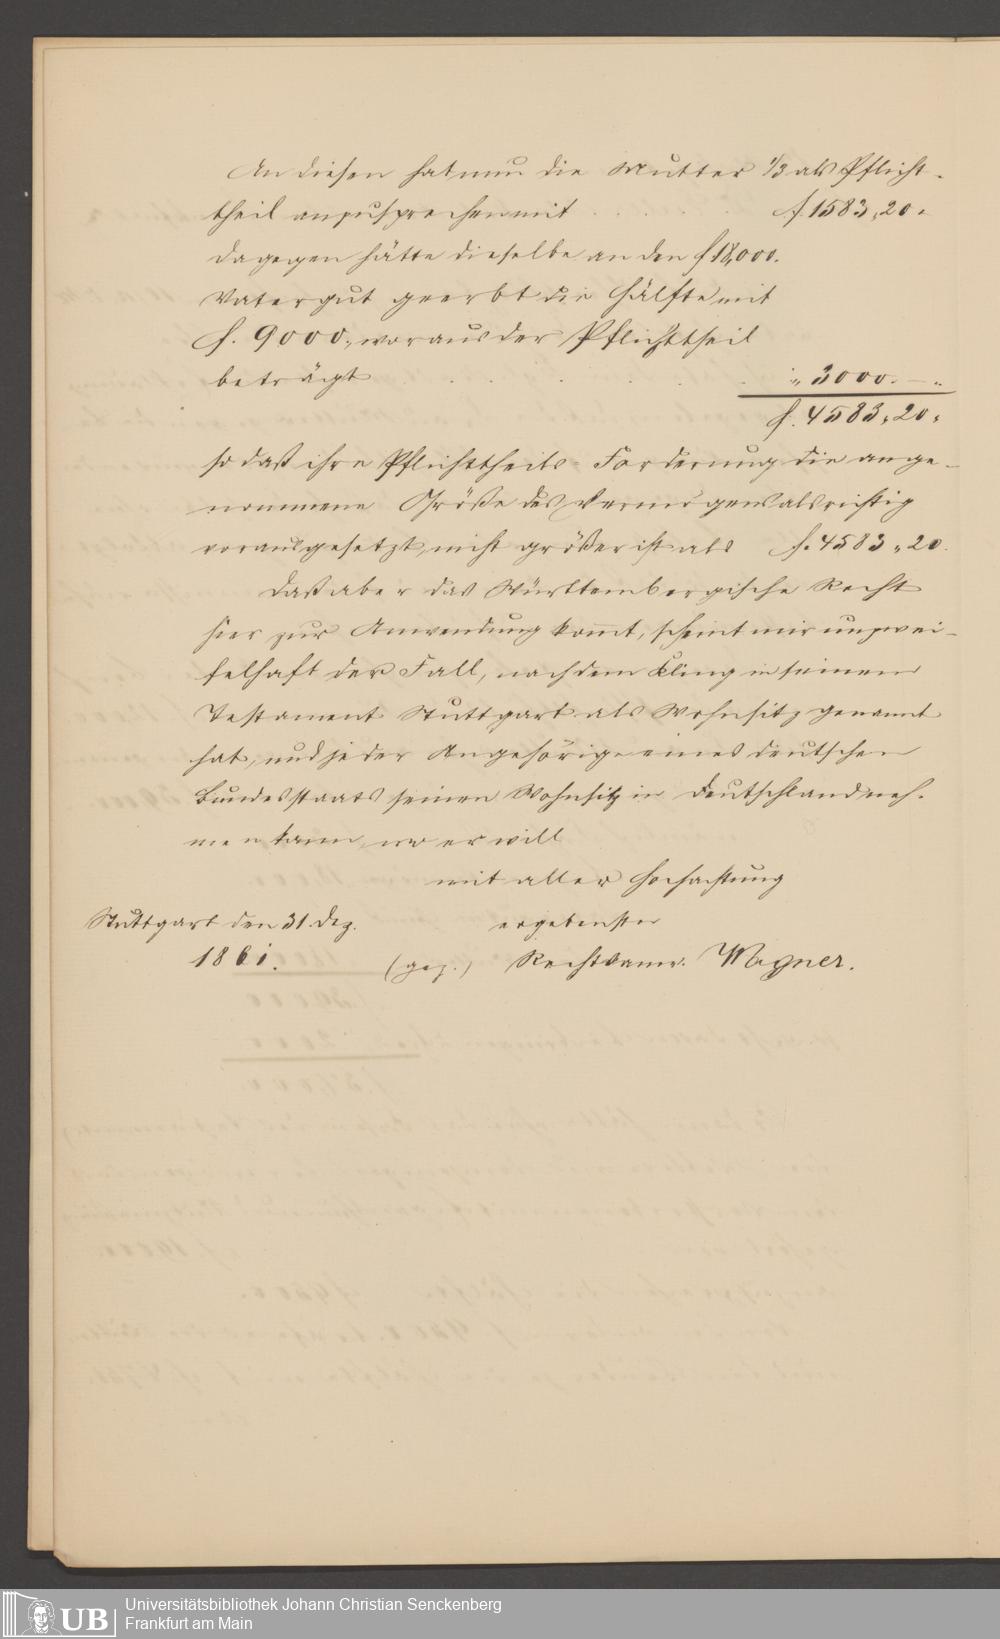 An diesen hat nun die Mutter 1/3 als Pflicht-
theil anzusprechen mit . . . . . f. 1583 „ 20 „
dagegen hätte dieselbe an den f 18,000.
Vatergut geerbt die Hälfte mit
f. 9000., woraus der Pflichttheil
beträgt . . . . . . „ 3000. — „
f. 4583 „ 20 „
so daß ihre Pflichttheils-Forderung die ange-
nommene Größe des Vermögens als richtig
vorausgesetzt, nicht größer ist als f. 4583 „ 20.
Daß aber das Württembergische Recht
hier zur Anwendung kom̄t, scheint mir unzwei-
felhaft der Fall, nachdem Kling in seinem
Testament Stuttgart als Wohnsitz genannt
hat, und jeder Angehörige eines deutschen
Bundesstaats seinen Wohnsitz in Deutschland neh-
men kann, wo er will
mit aller Hochachtung
Stuttgart den 31. Dez. ergebenster
1861. (gez.) Rechtsanw. Wagner.
UB Universitätsbibliothek Johann Christian Senckenberg
Frankfurt am Main